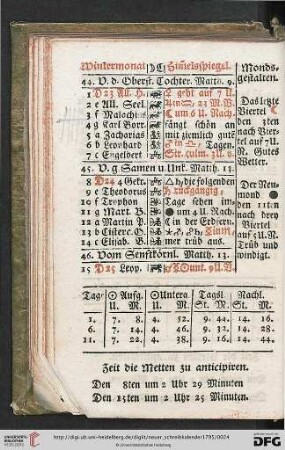 Wintermonat Himelsspiegel. Monds-
gestalten.
44. V. d. Oberst. Tochter. Matth. 9.
1 D 23 All. H. geht auf 7 U.
2 e All. Seel 23 M. V.
3 f Malachias um 6 U. Nach.
4 g Carl Borr. fängt schön an
5 a Zacharias mit ziemlich gute
6 b Leonhard in Tagen.
7 C Engelbert
Das letzte
Viertel
den 3ten
nach Vier-
tel auf 7 U.
N. Gutes
Wetter.
45. V. g Samen u Unk. Matth. 13.
8 D 24 4 Gekr. die folgenden
9 e Theodorus rückgängig,
10 f Tryphon Tage sehen
11 g Mart. B. um 4 U. Nach.
12 a Martin P. in der Erdfern.
13 b
14 c Elisab. B. mer trüb aus.
Der Neu-
mond
den 11ten
nach drey
Viertel
auf 3 U. N.
Trüb und
windigt.
46. Vom Senfkörnl. Matth. 13.
15 D 25 Leop.
Tag Aufg. Unterg. Tagsl. Nachl.
U. M. U. M. St. M. St. M.
1. 7. 8. 4. 52. 9. 44. 14. 16.
6. 7. 14. 4. 46. 9. 32. 14. 28.
11. 7. 22. 4. 38. 9. 16. 14. 44.
Zeit die Metten zu anticipiren.
Den 8ten um 2 Uhr 29 Minuten
Den 15ten um 2 Uhr 25 Minuten.
http://digi.ub.uni-heidelberg.de/diglit/neuer_schreibkalender1795/0024
© Universitätsbibliothek Heidelberg
UNIVERSITÄTS-
BIBLIOTHEK
HEIDELBERG
gefördert durch die
DFG